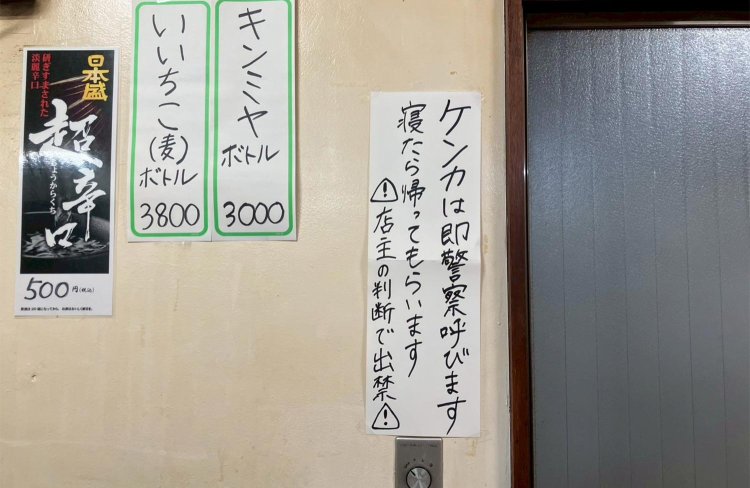 日本盛
研ぎすまされた
淡麗辛口
超辛口
ちょうからくち
500円(税込)
いいちこ(麦)ボトル
3800
キンミヤボトル
3000
ケンカは即警察呼びます
寝たら帰ってもらいます
⚠店主の判断で出禁⚠